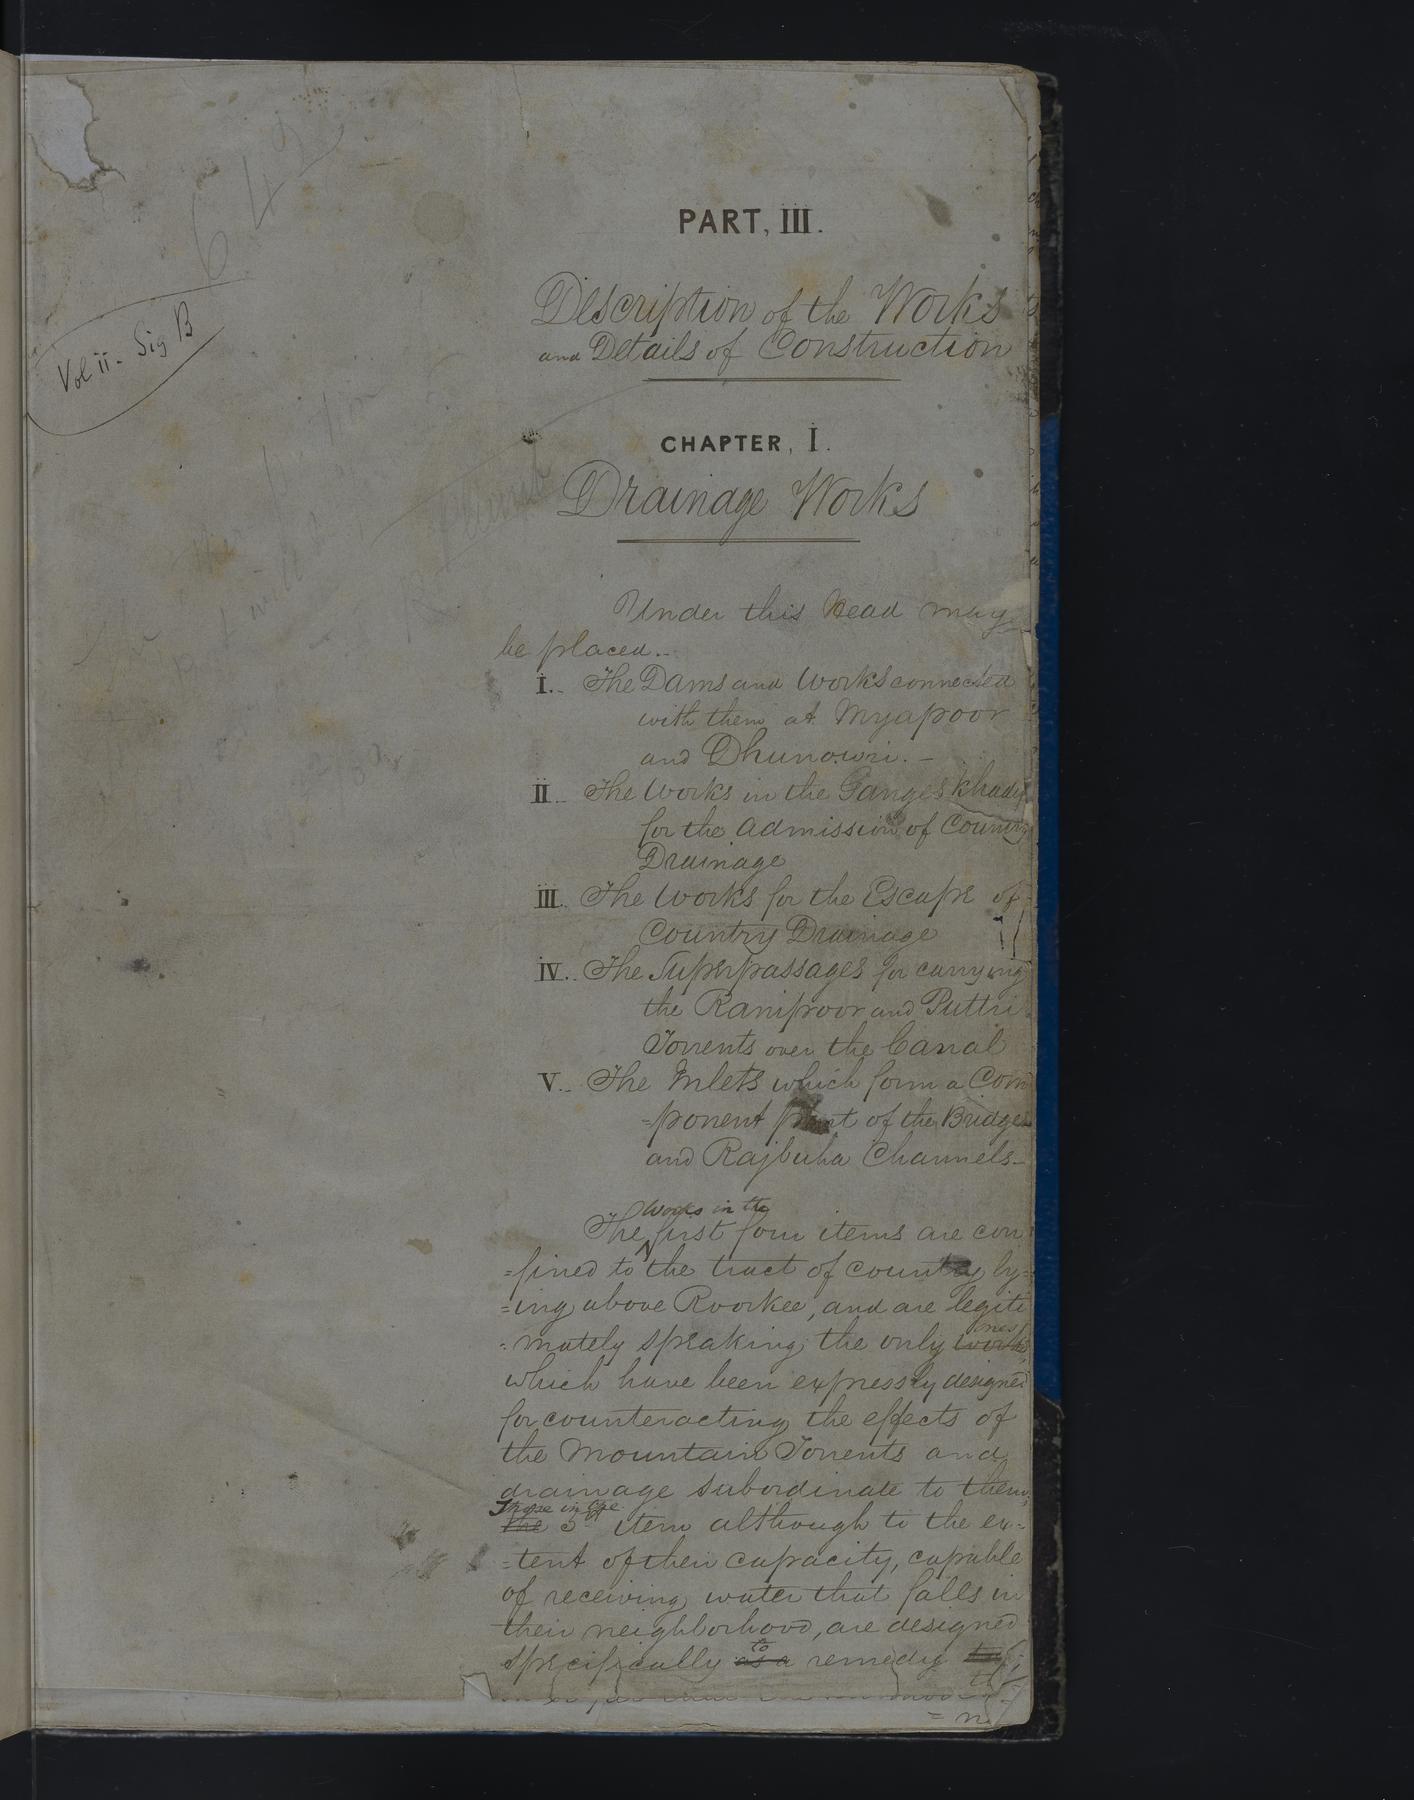 642
Vol ii - Sig B
PART, III.
Description of the Works
and Details of Construction
CHAPTER, I.
Drainage Works
Under this Head may
be placed..
I.. The Dams and Works connected
with them at Myapoor
and Dhunowri. -
II.. The Works in the Ganges Khadir
for the admission of Country
Drainage
III.. The Works for the Escape of
Country Drainage
IV.. The Superpassages for carrying
the Ranipoor and Puttri
Torrents over the Canal
V.. The Inlets which form a Com
=ponent part of the Bridges
and Rajbuha Channels-
works in the
The first four items are con
=fined to the tract of country ly=
=ing above Roorkee, and are legiti
=mately speaking, the only works,
ones
which have been expressly designed
for counteracting the effects of
the Mountain Torrents and
drainage subordinate to them,
Those in the
The 5th item although to the ex=
=tent of their capacity, capable
of receiving water that falls in
their neighborhood, are designed
to
specifically as a remedy